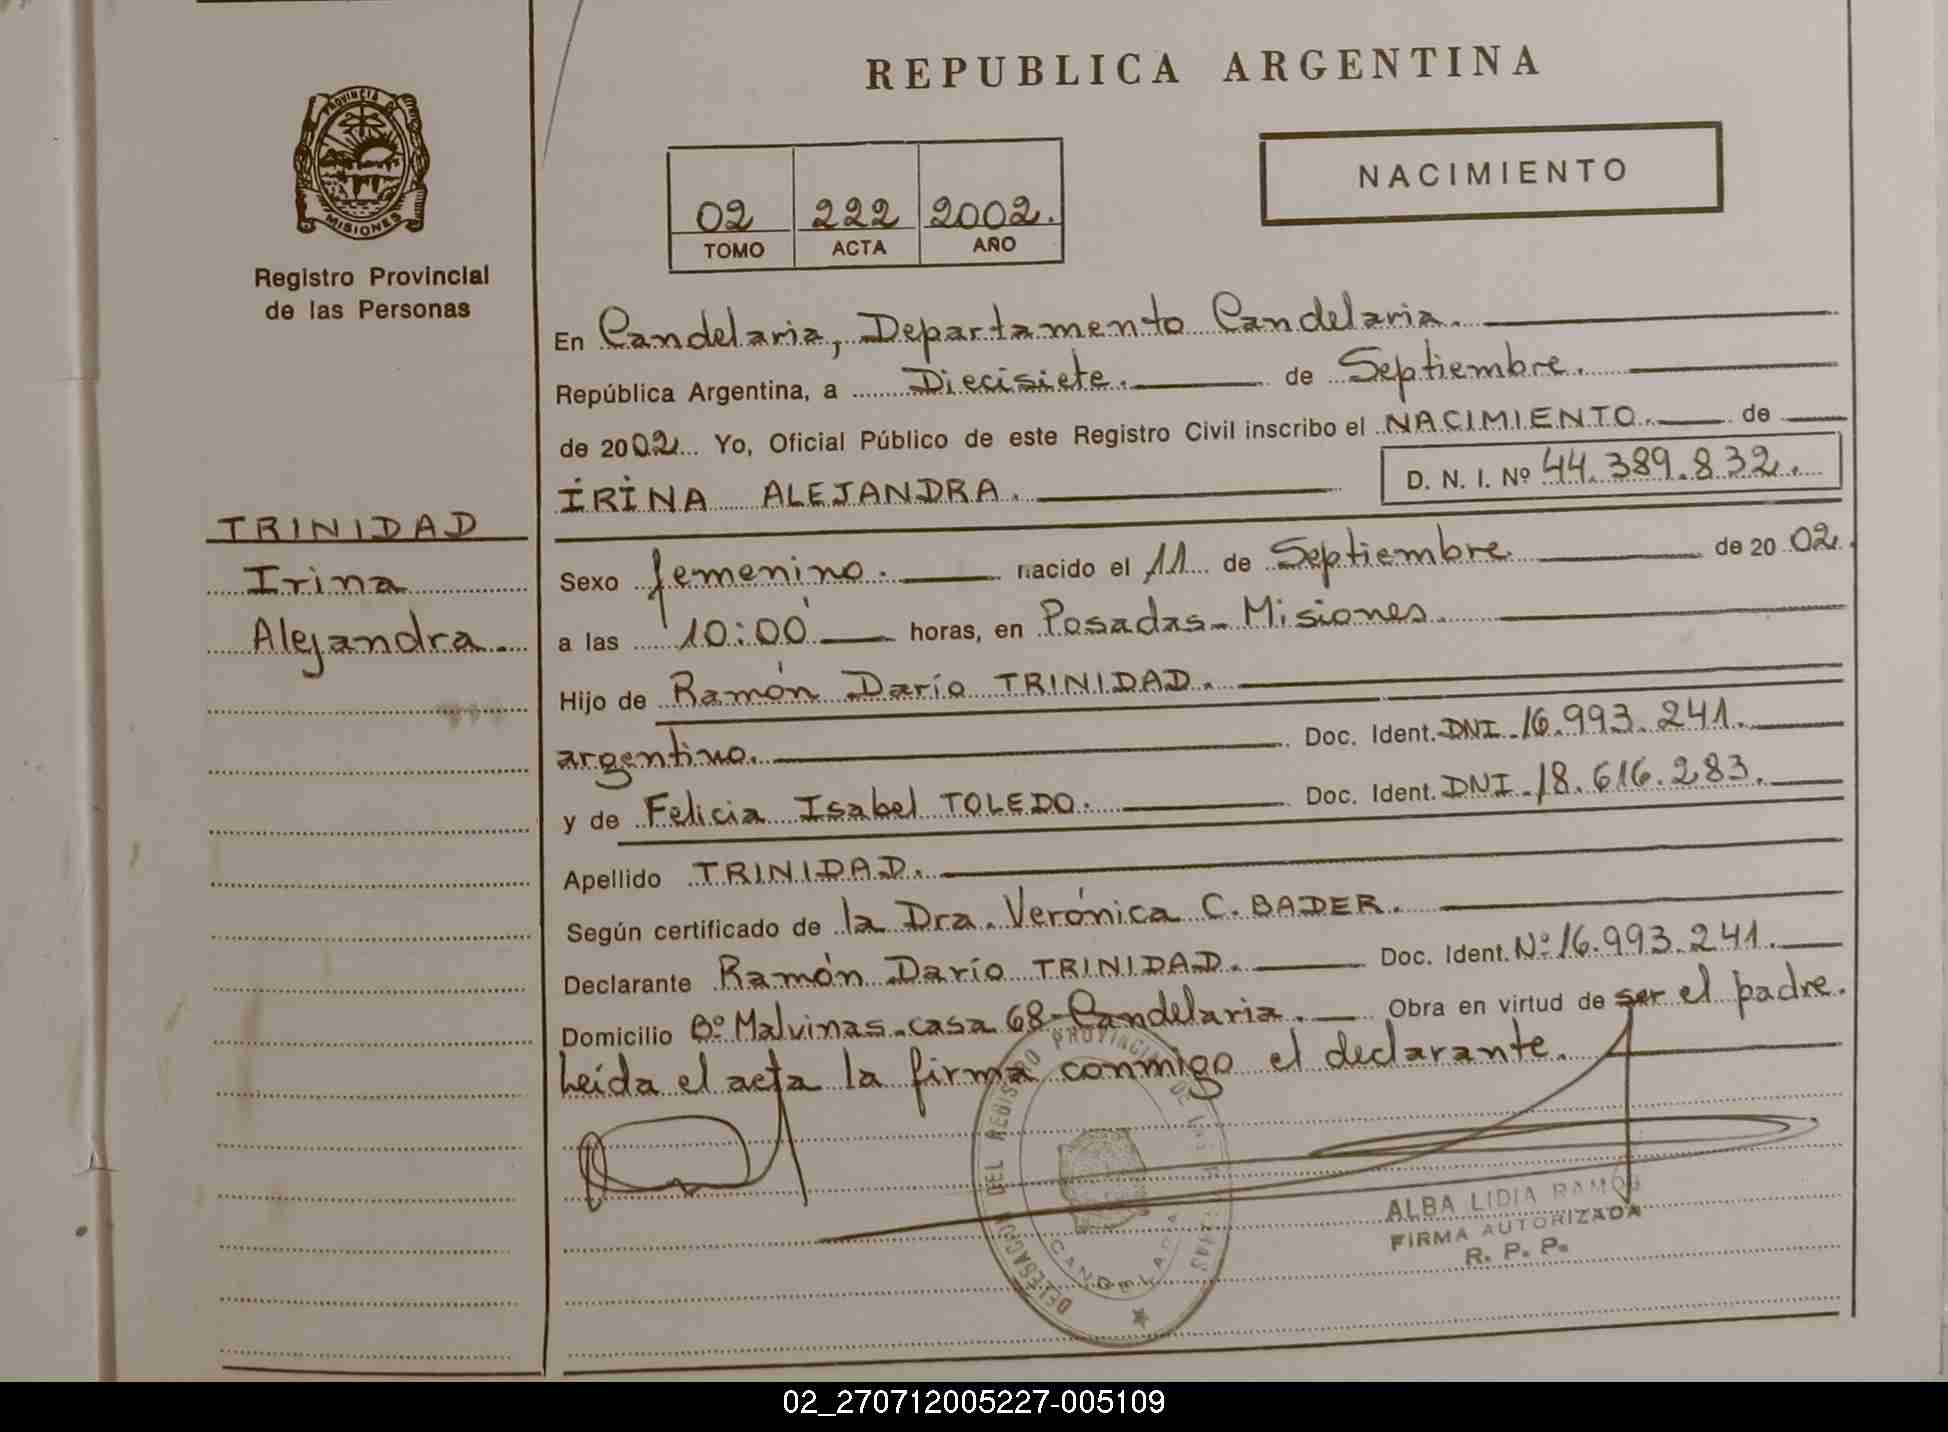 REPUBLICA ARGENTINA
PROVINCIA DE
MISIONES
Registro Provincial
de las Personas
02 222 2002.
TOMO ACTA AÑO
NACIMIENTO
TRINIDAD
Irina
Alejandra.
En Candelaria, Departamento Candelaria.
República Argentina, a Diecisiete. de Septiembre.
de 2002 Yo, Oficial Público de este Registro Civil inscribo el NACIMIENTO. de
IRINA ALEJANDRA. D. N. I. Nº 44.389.832.
Sexo femenino. nacido el 11 de Septiembre. de 2002.
a las 10:00 horas, en Posadas - Misiones.
Hijo de Ramón Darío TRINIDAD.
argentino. Doc. Ident. DNI. 16.993.241.
y de Felicia Isabel TOLEDO. Doc. Ident. DNI. 18.616.283.
Apellido TRINIDAD.
Según certificado de la Dra. Verónica C. BADER.
Declarante Ramón Darío TRINIDAD. Doc. Ident. Nº 16.993.241.
Domicilio Bº Malvinas - casa 68 - Candelaria. Obra en virtud de ser el padre.
Leída el acta la firma conmigo el declarante.
DELEGACION DEL REGISTRO PROVINCIAL DE LAS
CANDELARIA
ALBA LIDIA RAMOS
FIRMA AUTORIZADA
R. P. P.
02_270712005227-005109